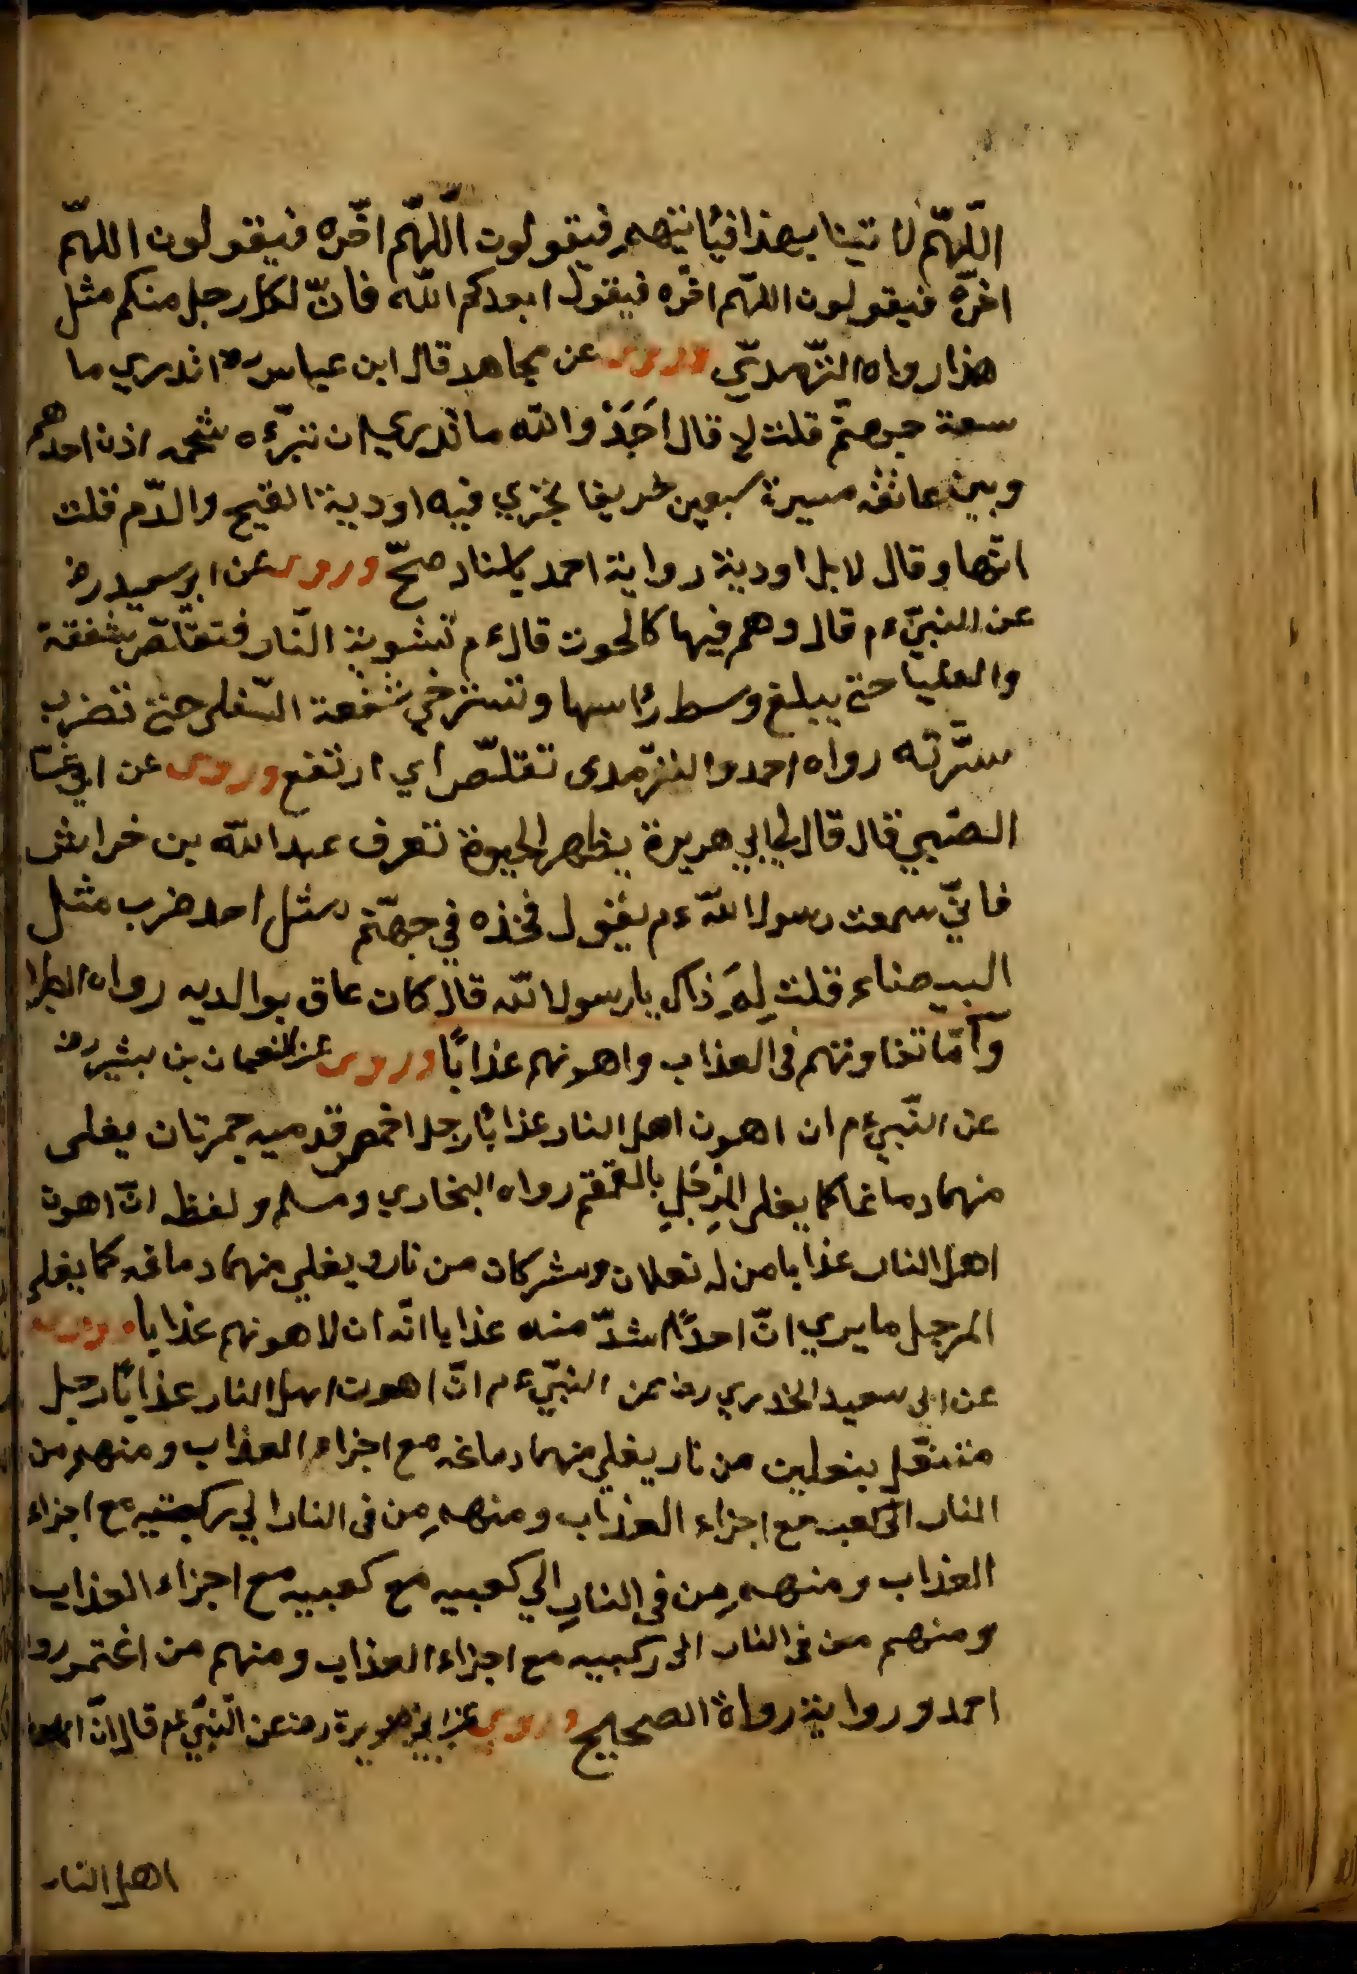 اللّهمّ لا تيتنا بهذا فيأتيهم فيقولون اللّهمّ اخّره فيقولون اللهمّ
اخزه فيقولون اللهمّ اخّره فيقول ابعدكم الله فانّ لكل رجل منكم مثل
هذا رواه التّرمديّ وروى عن مجاهد قال ابن عباس رض اتدري ما
سعة جهنمّ قلت لا قال اَجَدْ والله ما تدري ان تبرّءه شحمه اذن احدهم
وبين عاتقه مسيرة سبعين خريفا تجري فيه اودية القيح والدّم قلت
انهّا وقال لا بل اودية رواية احمد باسناد صحّ وروى عن ابو سعيد رض
عن النبيّ ءم قال وهم فيها كالحوت قال ءم تشوية النّار فتقلّص شفقة
والعليا حتى يبلغ وسط رأسها وتسترخي شفعة السّفلى حتى تضرب
سرّته رواه احمد والترّمدى تقلّص اي ارتفع وروى عن ابي غسّا
الضبي قال قال لي ابي هريرة بظهر الحيوة تعرف عبد الله بن خراش
فانيّ سمعت رسول اللّه ءم يقول فخذه في جهنّم مثل احد ضرب مثل
البيضاء قلت لِمَ ذاك يا رسول الله قال كان عاق بوالديه رواه الطبرا
وامّا تفاوتهم فى العذاب واهونهم عذابًا وروى عن النعمان بن بشير رض
عن النّبيّ ءم ان اهون اهل النار عذابًا رجل اخمص قدميه جمرتان يغلى
منهما دماغها كما يغلى المِرْجَلِ بالقمقم رواه البخاري ومسلم ولفظه انّ اهون
اهل النار عذابا من له نعلان وشركان من نار ويغلي منهما دماغه كما يغلي
المرجل ما يري انّ احدًا اشدّ منه عذابا انّه ان لاهونهم عذابا وروى
عن ابي سعيد الخدري رض عن النبيّ ءم انّ اهون اهل النار عذابًا رجل
متنعّل بنعلين من نار يغلي منهما دماغه مع اجزاء العذاب ومنهم من
النار الى كعبه مع اجزاء العذاب ومنهم من فى النار الي ركبتيه مع اجزاء
العذاب ومنهم من فى النار الي كعبيه مع كعبيه مع اجزاء العذاب
ومنهم من فى النار الى ركبيه مع اجزاء العذاب ومنهم من اغتمر روا
احمد وروايته رواة الصحيح وروى عن ابي هريرة رض عن النّبيّ عم قال انّ
اهل النار